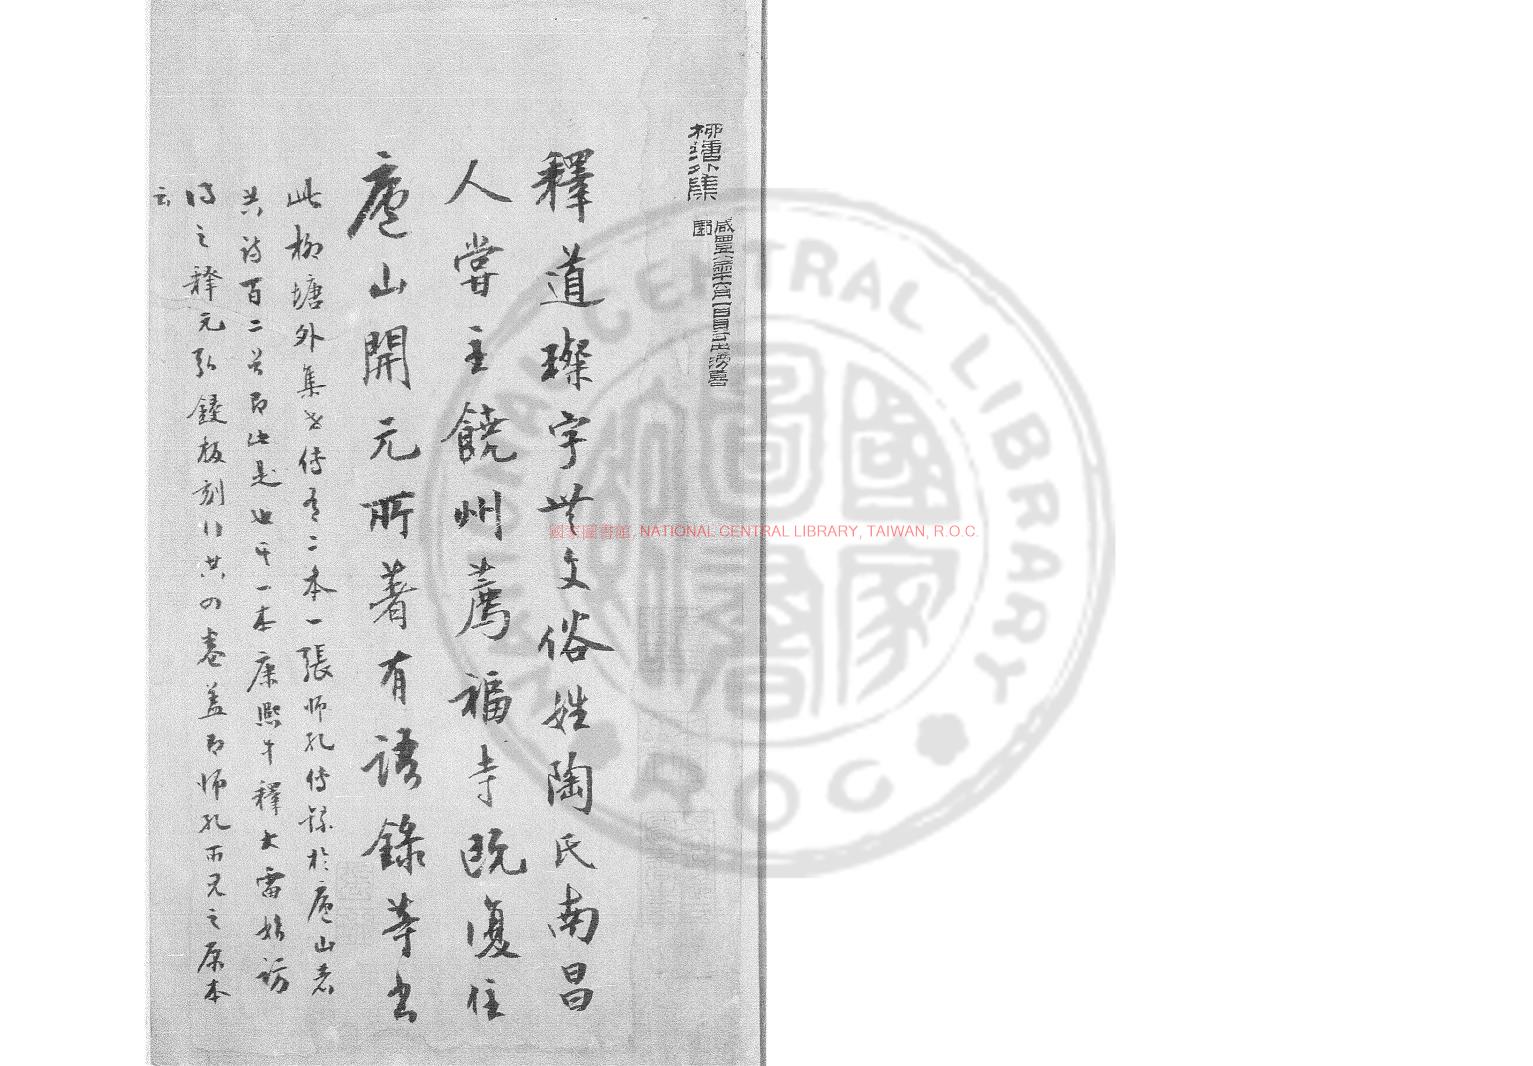 柳塘外集
釋道璨字無文俗姓陶氏南昌
人嘗主饒州薦福寺既復住
廬山開元所著有語錄等書
此柳塘外集世傳有二本一張師孔傳錄於廬山者
共詩百二首即此是也其一本康熙中釋大雷始訪
得之釋元弘鏤板刻行共四卷蓋即師孔所見之原本
云
國家圖書館, NATIONAL CENTRAL LIBRARY, TAIWAN, R.O.C.
NATIONAL CENTRAL LIBRARY
R O C
國家圖書館